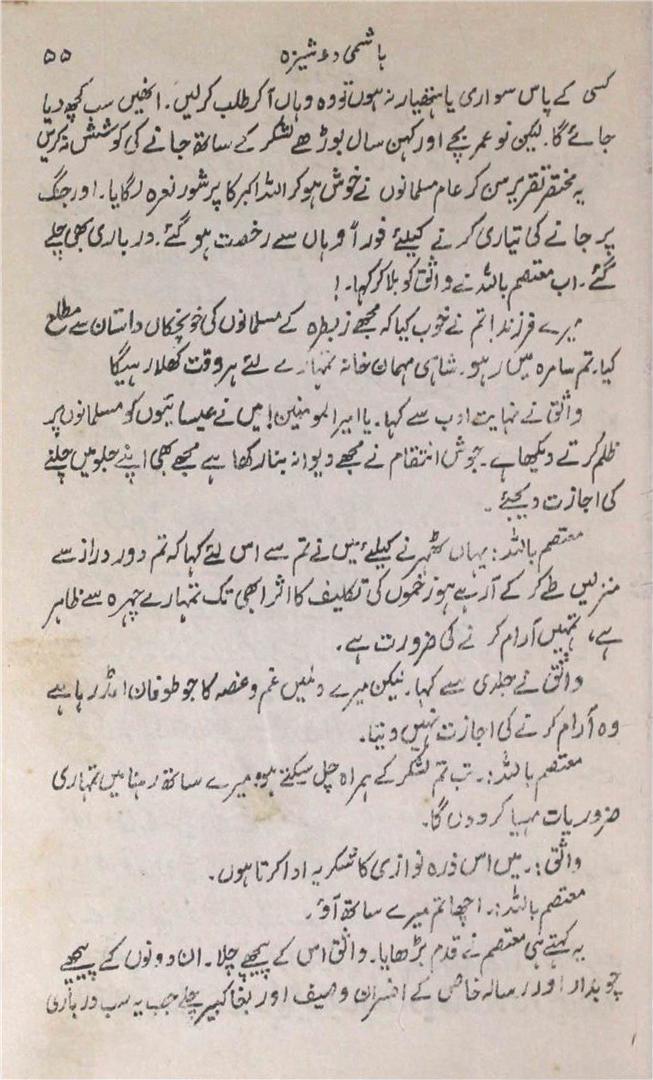 ہاشمی دوشیزہ ۵۵
کسی کے پاس سواری یا ہتھیار نہ ہوں تو وہ وہاں آکر طلب کرلیں۔ انھیں سب کچھ دیا
جائے گا۔ لیکن نو عمر بچے اور کہن سال بوڑھے لشکر کے ساتھ جانے کی کوشش نہ کریں
یہ مختصر تقریر سن کر عام مسلمانوں نے خوش ہوکر اللہ اکبر کا پرشور نعرہ لگایا۔ اور جنگ
پر جانے کی تیاری کرنے کیلئے فوراً وہاں سے رخصت ہوگئے۔ درباری بھی چلے
گئے۔ اب معتصم باللہ نے واثق کو بلا کر کہا۔!
میرے فرزند! تم نے خوب کیا کہ مجھے زبطرہ کے مسلمانوں کی خونچکاں داستان سے مطلع
کیا۔ تم سامرہ میں رہو۔ شاہی مہمان خانہ تمہارے لئے ہر وقت کھلا رہیگا
واثق نے نہایت ادب سے کہا۔ یا امیر المومنین! میں نے عیسائیوں کو مسلمانوں پر
ظلم کرتے دیکھا ہے۔ جوش انتقام نے مجھے دیوانہ بنا رکھا ہے مجھے بھی اپنے جلو میں چلنے
کی اجازت دیجئے۔
معتصم باللہ: یہاں ٹھہرنے کیلئے میں نے تم سے اس لئے کہا کہ تم دور دراز سے
منزلیں طے کر کے آرہے ہو زخموں کی تکلیف کا اثر ابھی تک تمہارے چہرہ سے ظاہر
ہے، تمہیں آرام کرنے کی ضرورت ہے۔
واثق نے جلدی سے کہا۔ لیکن میرے دلمیں غم و غصہ کا جو طوفان امڈ رہا ہے
وہ آرام کرنے کی اجازت نہیں دیتا۔
معتصم باللہ:۔ تب تم لشکر کے ہمراہ چل سکتے ہو، میرے ساتھ رہنا میں تمہاری
ضروریات مہیا کردوں گا۔
واثق:۔ میں اس ذرہ نوازی کا شکریہ ادا کرتا ہوں۔
معتصم باللہ:۔ اچھا تم میرے ساتھ آؤ۔
یہ کہتے ہی معتصم نے قدم بڑھایا۔ واثق اس کے پیچھے چلا۔ ان دونوں کے پیچھے
چوبدار اور رسالہ خاص کے افسران وصیف اور بغا کبیر چلے جب یہ سب درباری